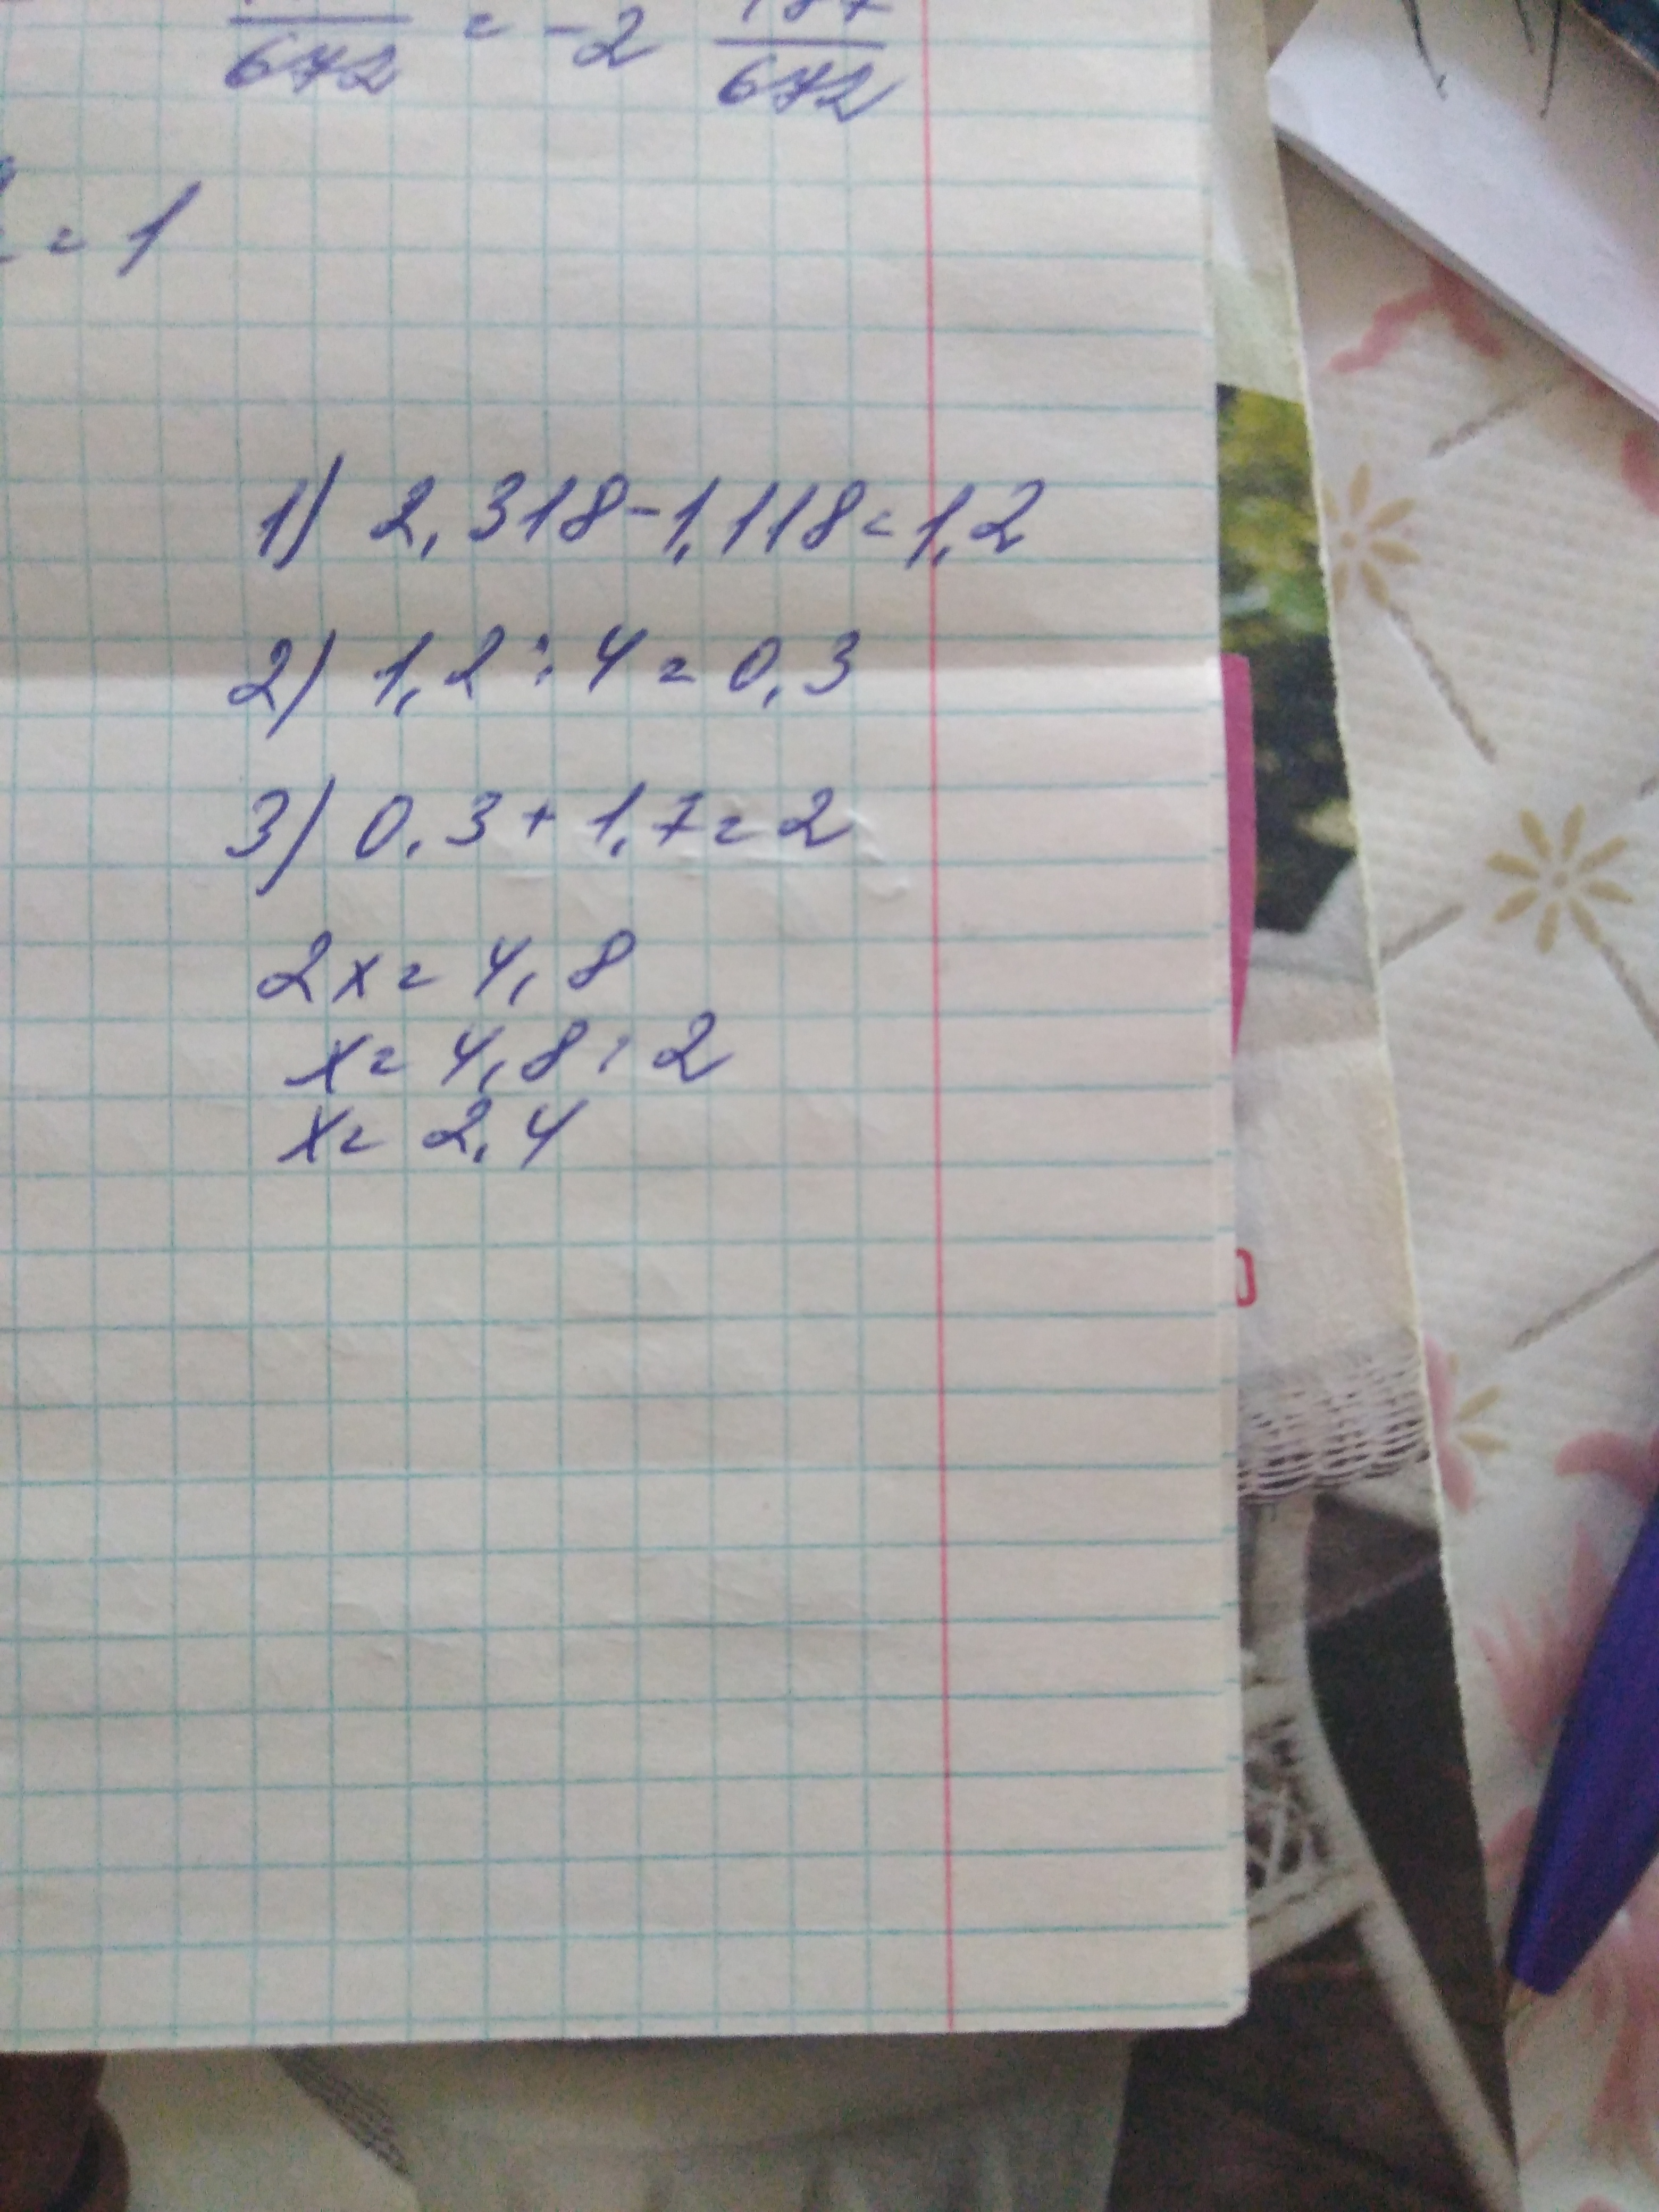 672 = -2 187/672
= 1
1) 2,318-1,118=1,2
2) 1,2:4=0,3
3) 0,3+1,7=2
2x=4,8
x=4,8:2
x=2,4